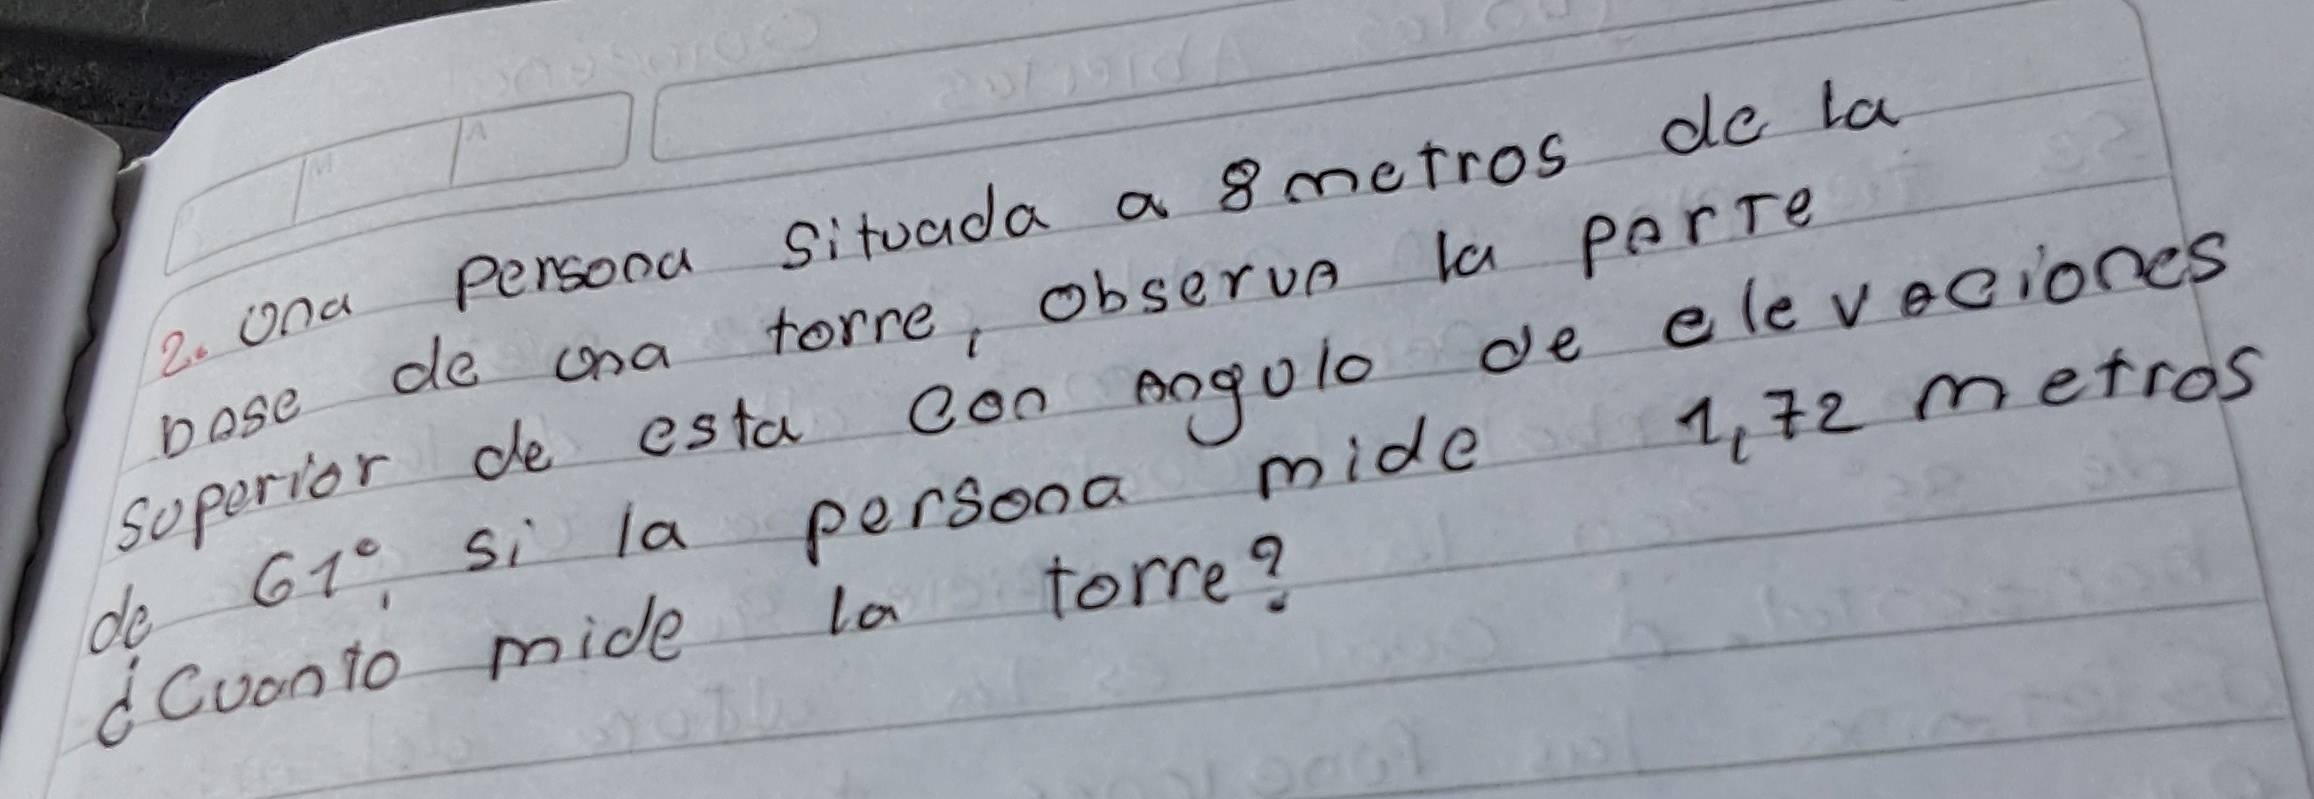 M
A
2. una persona situada a 8 metros de la
base de una torre, observa la parte
superior de esta con angulo de elevaciones
de 61°, si la persona mide 1,72 metros
¿Cuanto mide la torre?